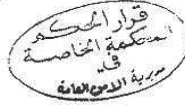 قرار الحكم
لمحكمة الخاصة
في
مديرية الامن العامة